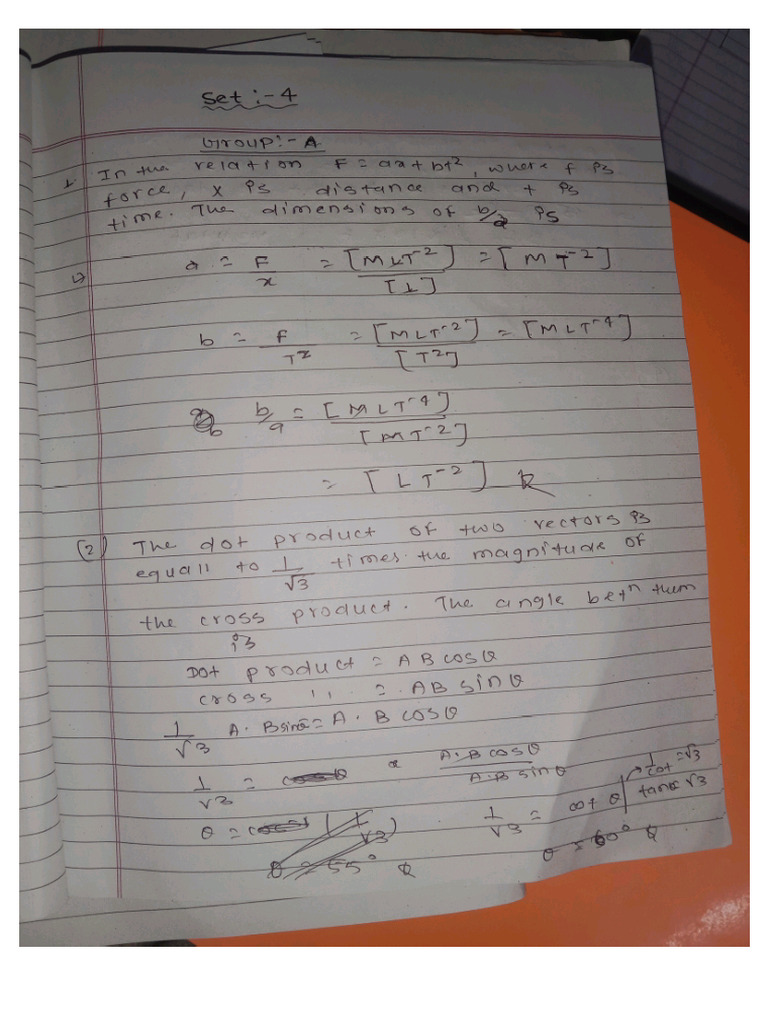 Set :- 4
Group :- A
1. In the relation F = ax + bt², where f is
force, x is distance and t is
time. The dimensions of b/a is
↳ a = F/x = [MLT⁻²]/[L] = [MT⁻²]
b = F/T² = [MLT⁻²]/[T²] = [MLT⁻⁴]
b/a = [MLT⁻⁴]/[MT⁻²]
= [LT⁻²]
(2) The dot product of two vectors is
equall to 1/√3 times the magnitude of
the cross product. The angle betⁿ them
is
Dot product = AB cosθ
cross ,, = AB sinθ
1/√3 A·B sinθ = A·B cosθ
1/√3 = A·B cosθ/A·B sinθ
1/√3 = cot θ
1/cot = √3
tanθ = √3
θ = 60°